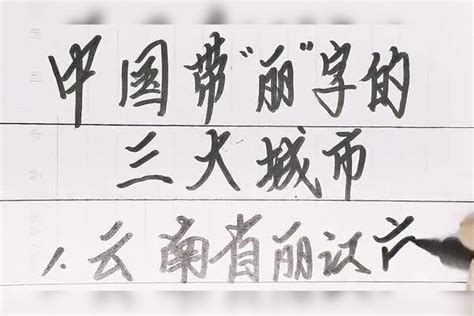 中国带“丽”字的
三大城市
1.云南省丽